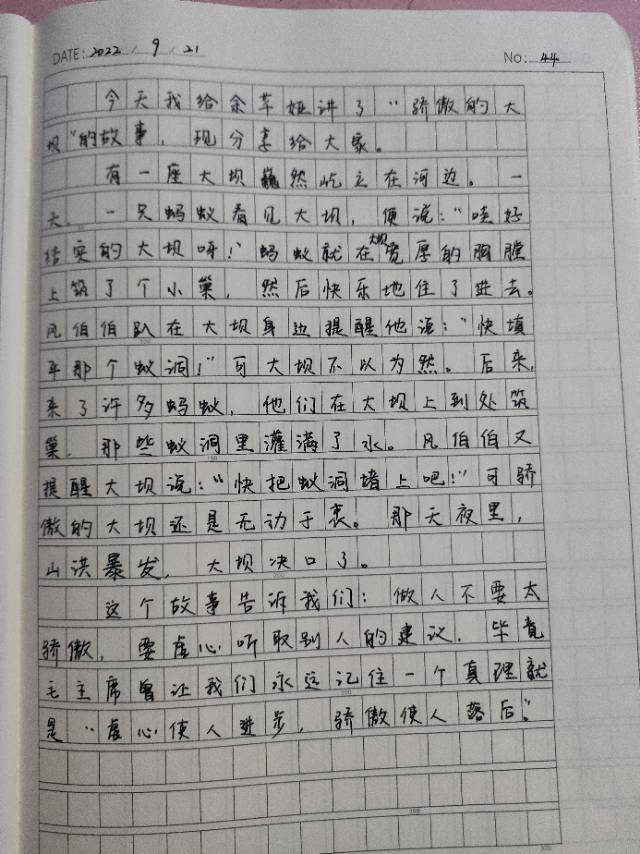 DATE: 2022 / 9 / 21
No: 44
今天我给余苹娅讲了“骄傲的大
坝”的故事，现分享给大家。
有一座大坝巍然屹立在河边。一
天，一只蚂蚁看见大坝，便说：“哇好
结实的大坝呀！”蚂蚁就在大坝宽厚的胸膛
上筑了个小巢，然后快乐地住了进去。
风伯伯趴在大坝身边提醒他说：“快填
平那个蚁洞！”可大坝不以为然。后来，
来了许多蚂蚁，他们在大坝上到处筑
巢，那些蚁洞里灌满了水。风伯伯又
提醒大坝说：“快把蚁洞堵上吧！”可骄
傲的大坝还是无动于衷。那天夜里，
山洪暴发，大坝决口了。
这个故事告诉我们：做人不要太
骄傲，要虚心听取别人的建议，毕竟
毛主席曾让我们永远记住一个真理就
是“虚心使人进步，骄傲使人落后”。